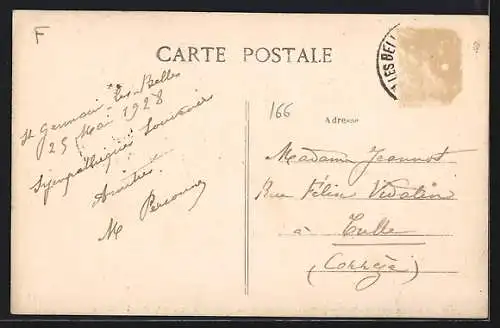 F
CARTE POSTALE
LES BEL
166
Adresse
St Germain-les-Belles
25 Mai 1928
Sympathiques Souvenirs
Amitiés
M
Madame Jeannot
Rue Félix Vidalin
à Tulle
(Corrèze)